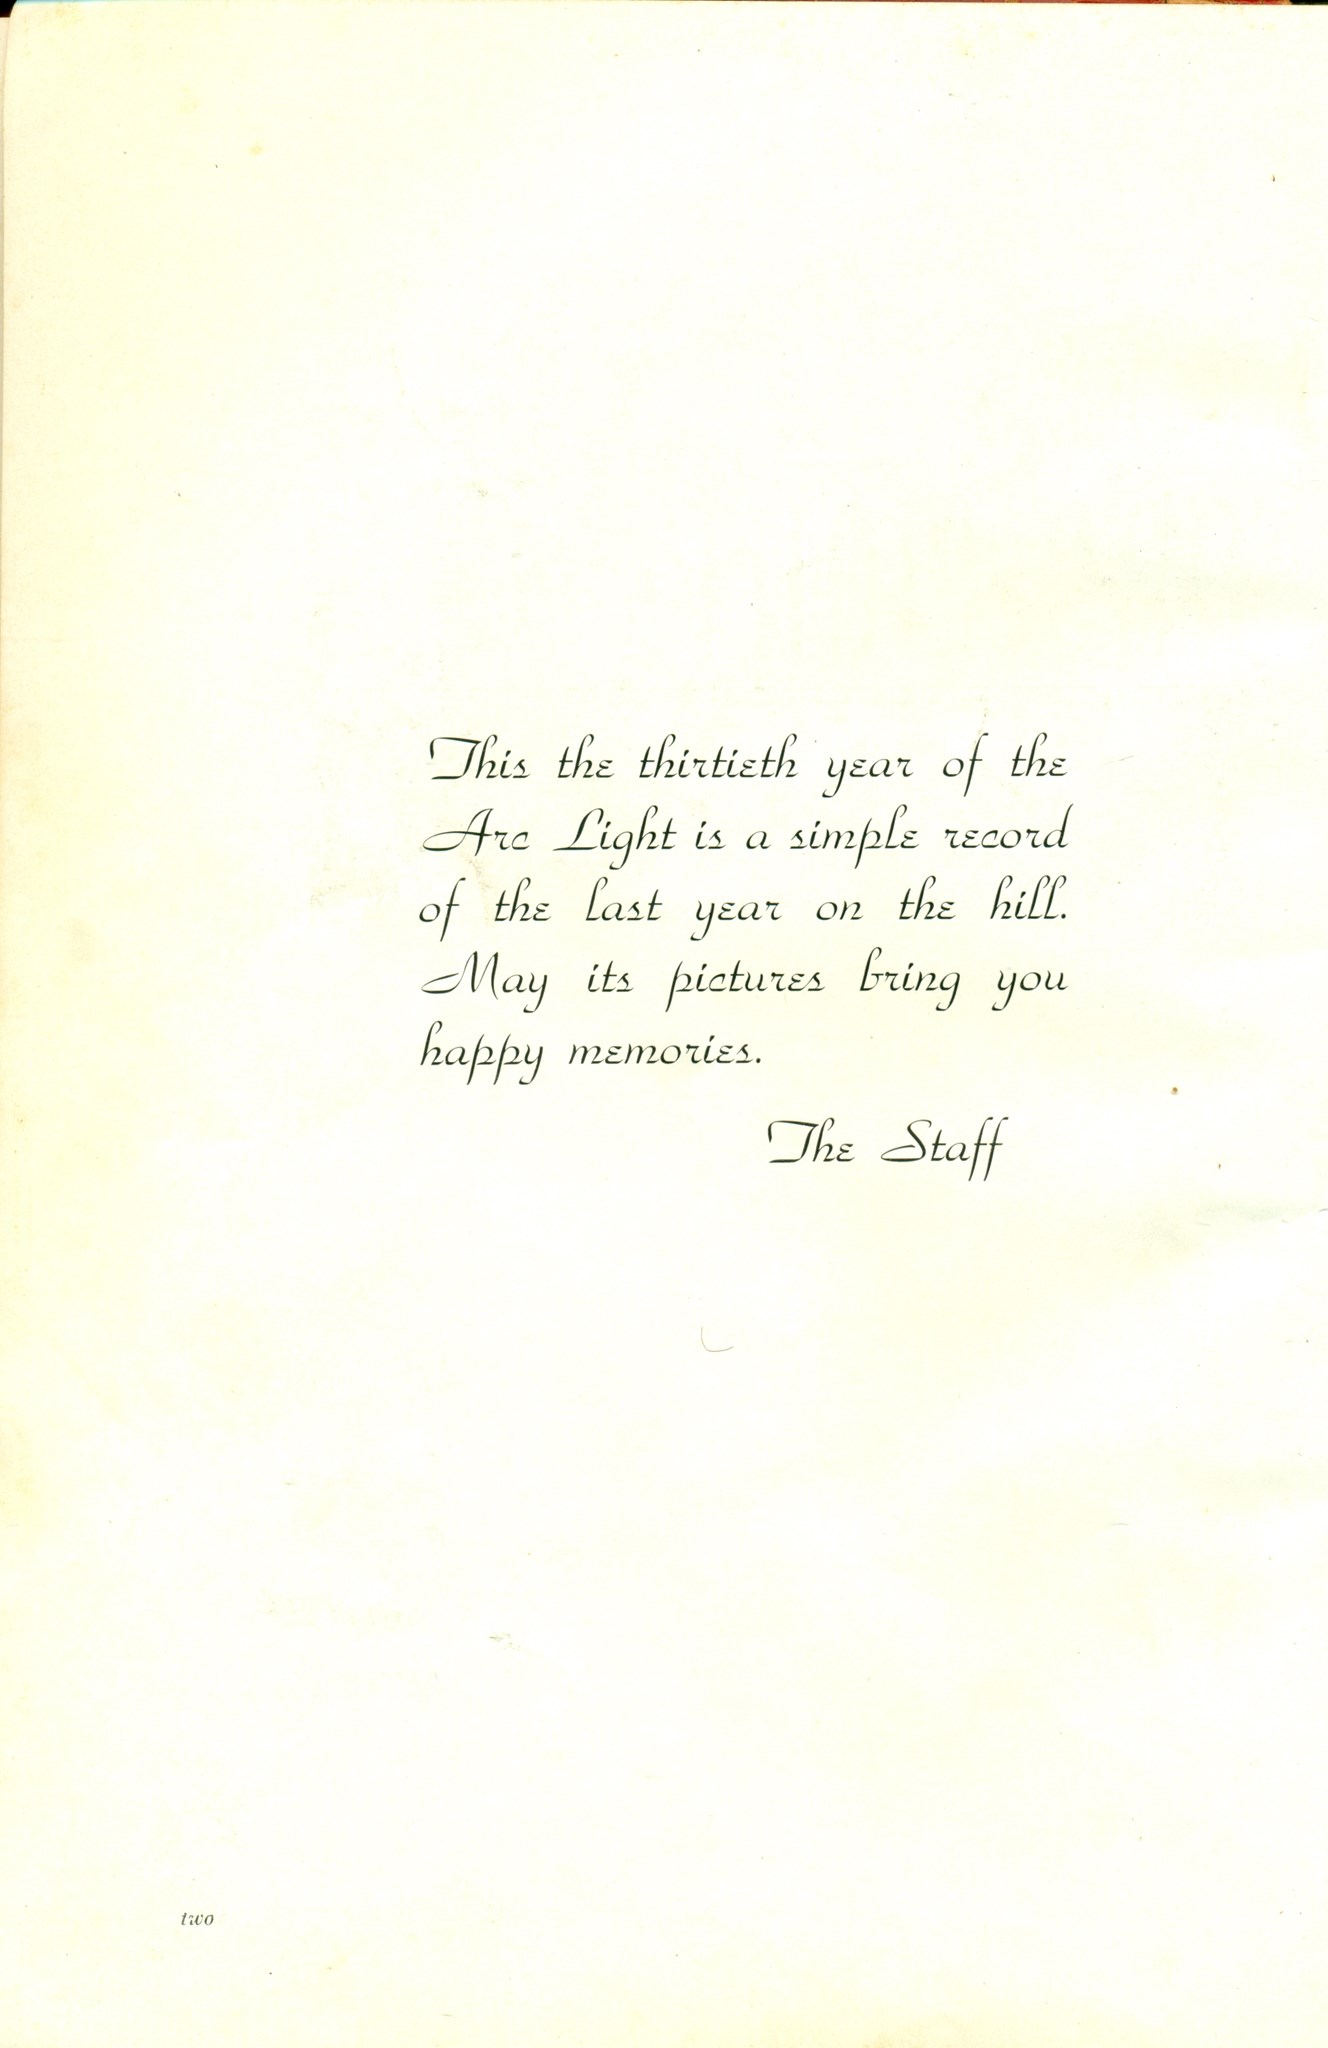 This the thirtieth year of the
Arc Light is a simple record
of the last year on the hill.
May its pictures bring you
happy memories.
The Staff
two